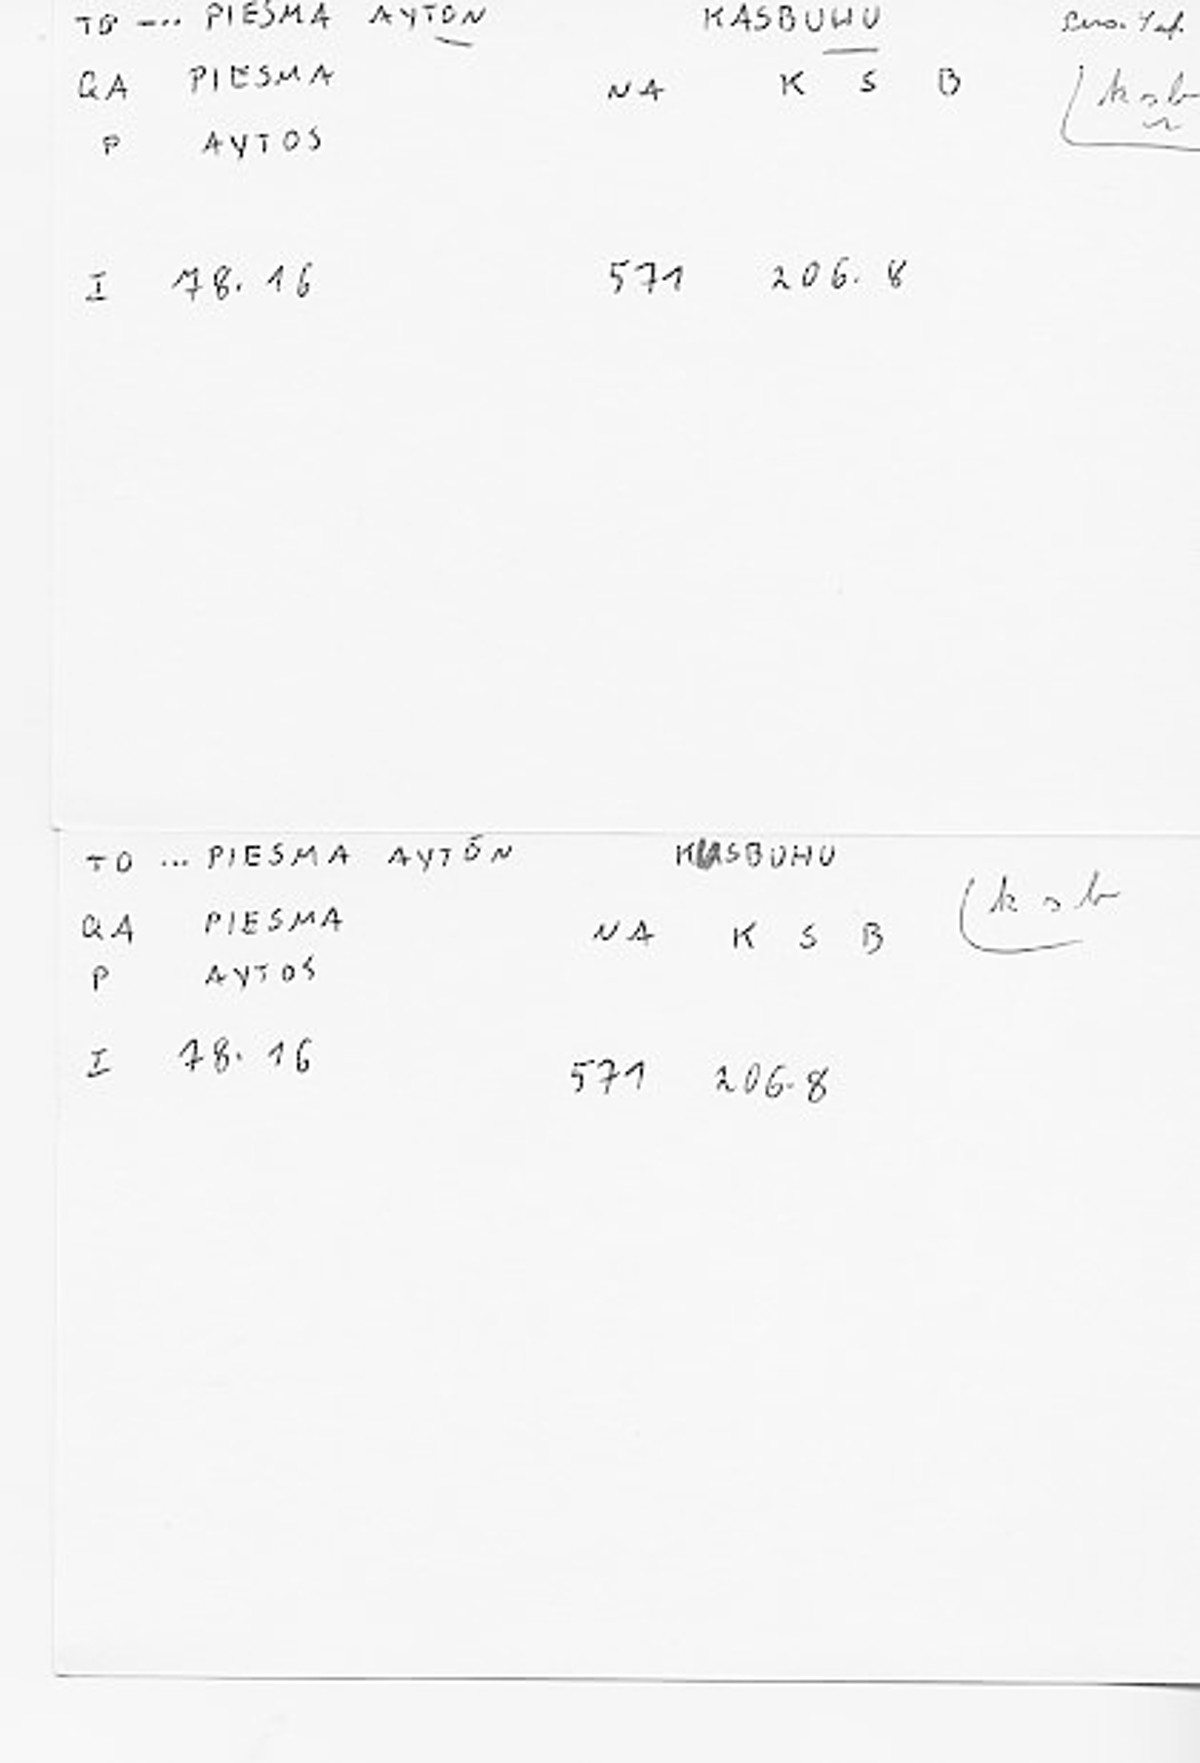 TO ... PIESMA AYTON KASBUHU
QA PIESMA NA K S B ksb
P AYTOS
I 78. 16 571 206. 8
TO ... PIESMA AYTŌN KASBUHU
QA PIESMA NA K S B ksb
P AYTOS
I 78. 16 571 206. 8